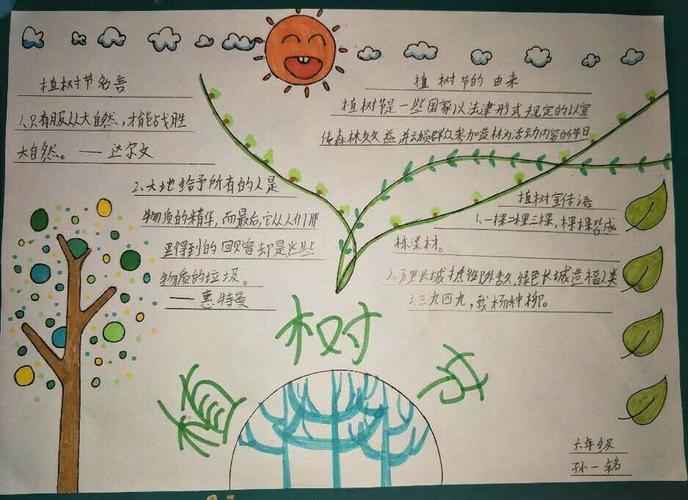 植树节名言
1.只有服从大自然,才能战胜
大自然。——达尔文
2.大地给予所有的人是
物质的精华,而最后,它从人们那
里得到的回赠却是这些
物质的垃圾。
——惠特曼
植树节的由来
植树节是一些国家以法律形式规定的以宣
传森林效益,并动员群众参加造林为活动内容的节日
植树宣传语
1.一棵二棵三棵,棵棵皆成
林是材。
2.万里长城 绿色长城造福人类
3.三九四九,我杨种柳。
植树节
六年级
孙一铭